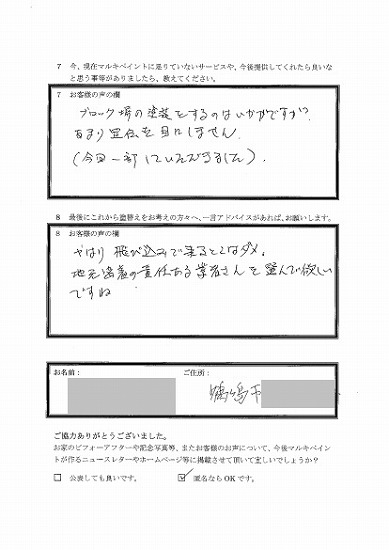 7 今、現在マルキペイントに足りていないサービスや、今後提供してくれたら良いな
と思う事等がありましたら、教えてください。
7 お客様の声の欄
ブロック塀の塗装をするのはいかがですか?
あまり宣伝を目にしません。
(今回一部していただきました)。
8 最後にこれから塗替えをお考えの方々へ、一言アドバイスがあれば、お願いします。
8 お客様の声の欄
やはり飛び込みで来るとこはダメ。
地元密着の責任ある業者さんを選んで欲しい
ですね
お名前:
ご住所:
鶴ヶ島市
ご協力ありがとうございました。
お家のビフォーアフターや記念写真等、またお客様のお声について、今後マルキペイント
が作るニュースレターやホームページ等に掲載させて頂いて宜しいでしょうか?
公表しても良いです。
匿名ならOKです。